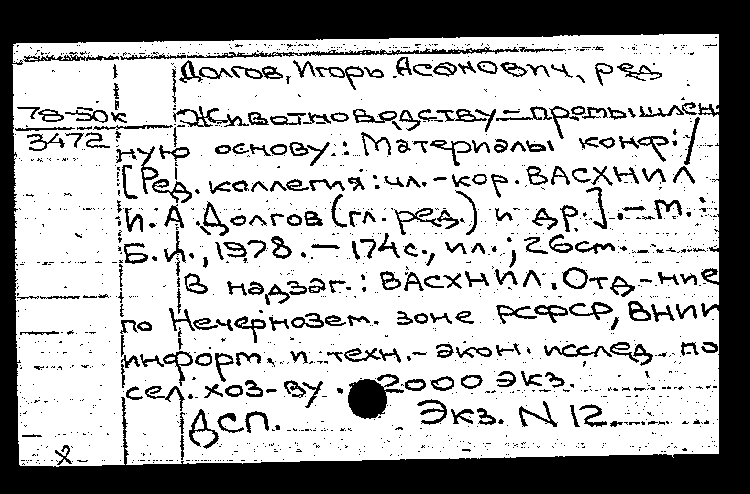 Долгов, Игорь Асонович, ред
78-50к Животноводству - промышлен-
3472 ную основу.: Материалы конф. /
[Ред. коллегия: чл.-кор. ВАСХНИЛ
И. А. Долгов (гл. ред.) и др.]. - М.:
Б. и., 1978. - 174с., ил.; 26см.
В надзаг.: ВАСХНИЛ. Отд-ние
по Нечернозем. зоне РСФСР, ВНИИ
информ. и техн.-экон. исслед. по
сел. хоз-ву. 2000 экз.
ДСП. Экз. N 12.